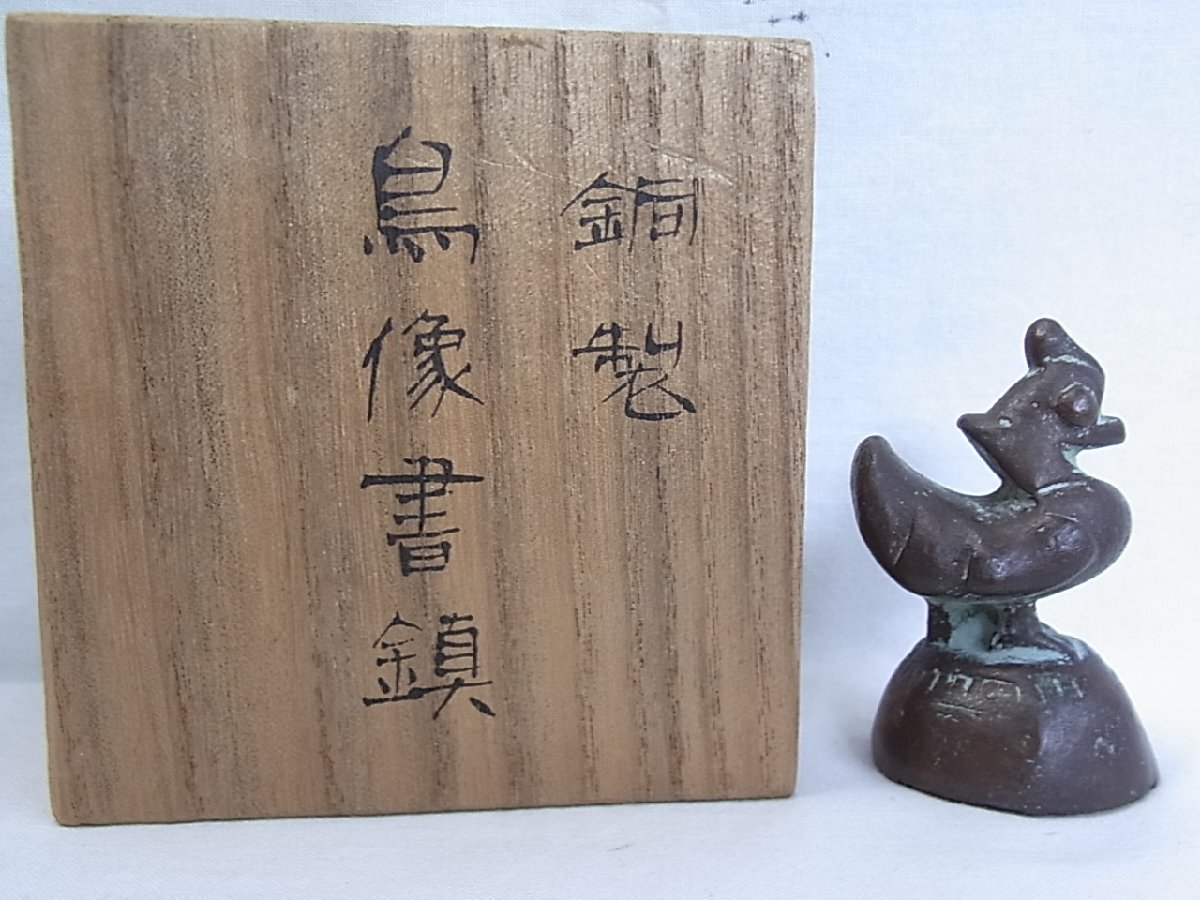 銅製
鳥像書鎮